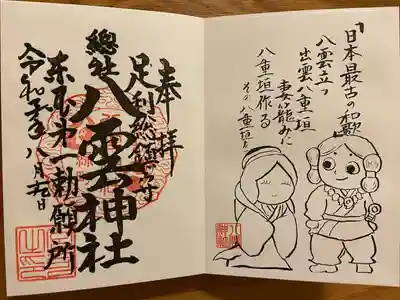 「日本最古の和歌
八雲立つ
出雲八重垣
妻籠みに
八重垣作る
その八重垣を
八雲神社
奉拝
足利総鎮守
總社八雲神社
第一勅願所
令和 年八月 日